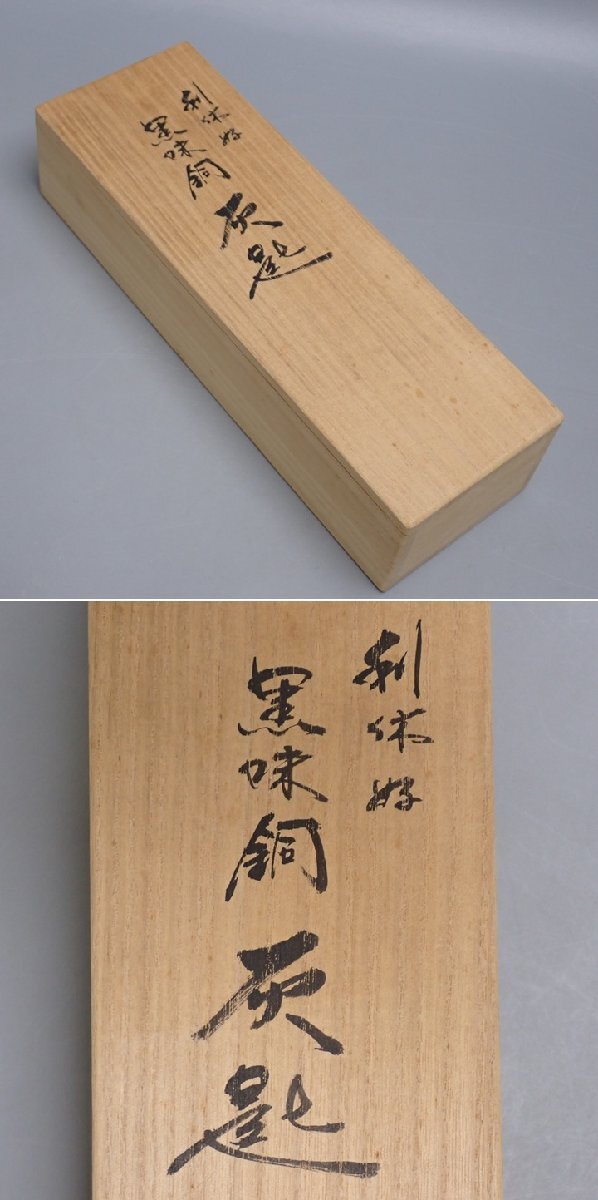 利休好
黒味銅灰匙
利休好
黒味銅灰匙